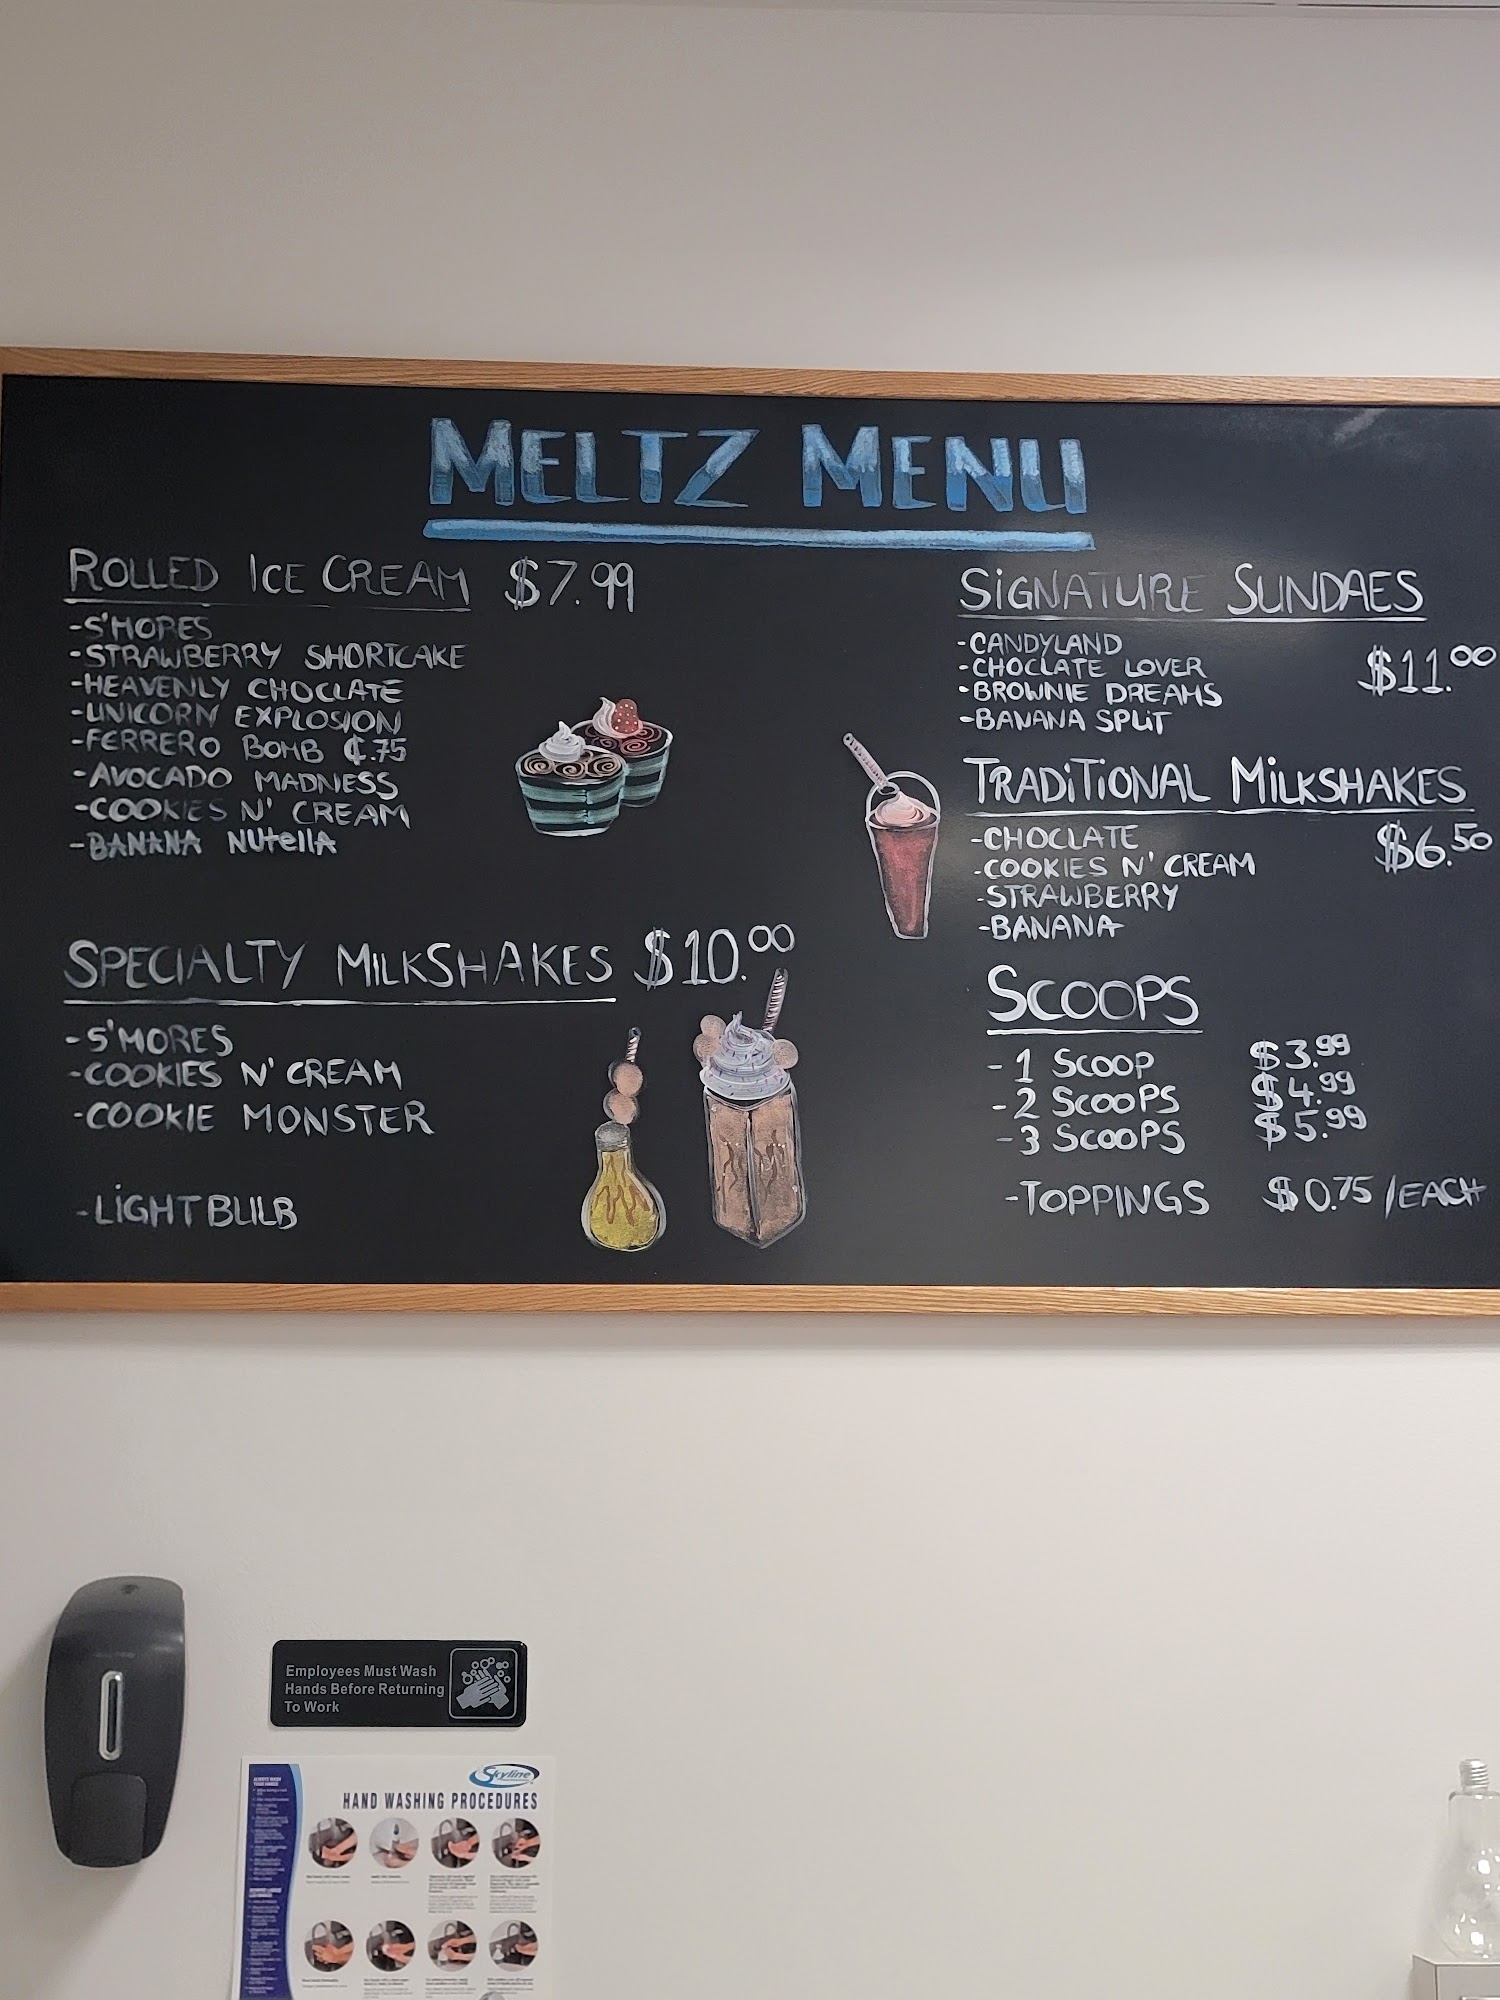 MELTZ MENU
ROLLED ICE CREAM $7.99
-S'MORES
-STRAWBERRY SHORTCAKE
-HEAVENLY CHOCLATE
-UNICORN EXPLOSION
-FERRERO BOMB ₵.75
-AVOCADO MADNESS
-COOKIES N' CREAM
-BANANA NUtellA
SPECIALTY MILKSHAKES $10.00
-S'MORES
-COOKIES N' CREAM
-COOKIE MONSTER
-LIGHTBULB
SIGNATURE SUNDAES
-CANDYLAND
-CHOCLATE LOVER $11.00
-BROWNIE DREAMS
-BANANA SPLIT
TRADITIONAL MILKSHAKES
-CHOCLATE $6.50
-COOKIES N' CREAM
-STRAWBERRY
-BANANA
SCOOPS
-1 SCOOP $3.99
-2 SCOOPS $4.99
-3 SCOOPS $5.99
-TOPPINGS $0.75/EACH
Employees Must Wash
Hands Before Returning
To Work
Skyline
HAND WASHING PROCEDURES